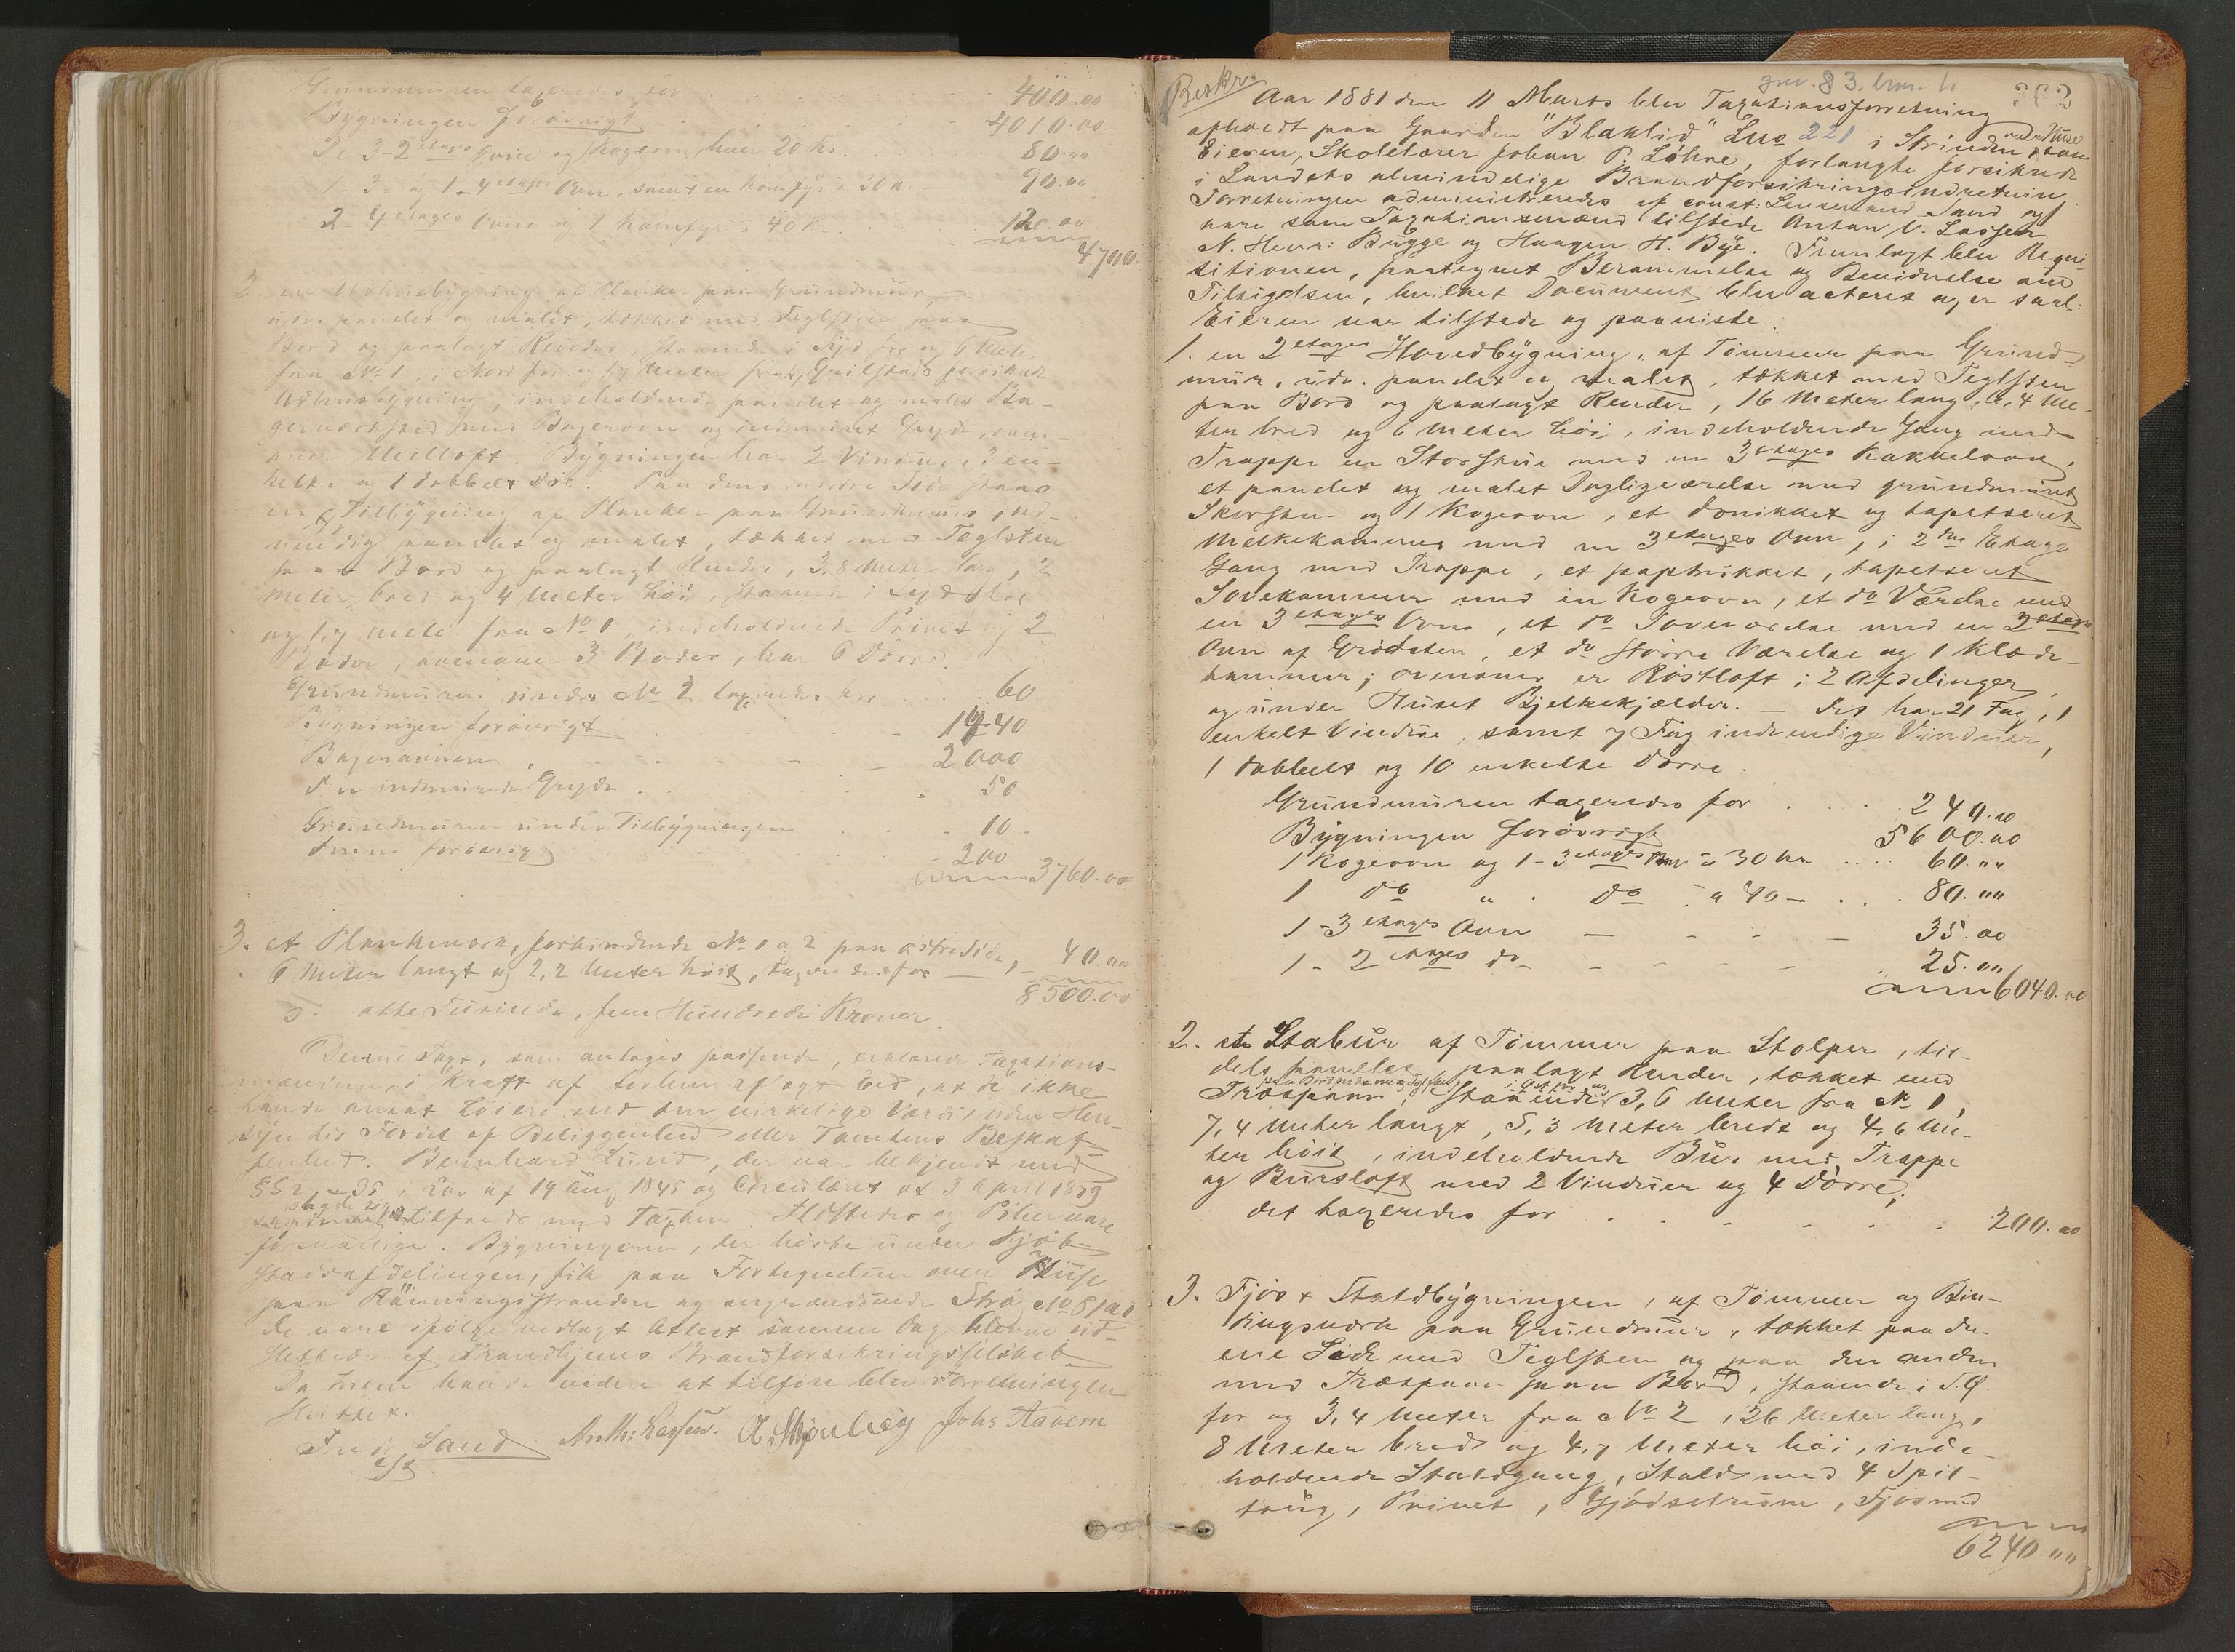 Grundmuren taxeredes for 400.00
Bygningen forøvrigt 4010.00
De 3-2 etages Ovne og Kogeovn, hver 20 Kr. 80.00
3- og 1-4 etages Ovn, samt en Komfyr a 30 Kr. 90.00
2-4 etages Ovne og 1 Komfyr a 40 Kr. 120.00
4700.
2. en Udhusbygning af Planker paa Grundmur,
udv. panelet og malet, tækket med Teglsten paa
Bord og paalagt Render, staaende i Syd for og 6 Meter
fra No 1, i Nord for og Meter fra forsikrede
Udhusbygning, indeholdende panelet og malet Ba-
gerværksted med Bagerovn og indmuret Gryde, oven-
over Melloft. Bygningen har 2 Vinduer, 3 en-
kelte og 1 dobbelt Dør. Paa dens nordre Side staar
en Tilbygning af Planker paa Grundmur, ud-
vendig panelet og malet, tækket med Teglsten
paa Bord og paalagt Render, 3,8 Meter lang, 2
Meter bred og 4 Meter høi, staaende i Syd for
og 1,7 Meter fra No 1, indeholdende Privet og 2
Boder, ovenover 3 Boder, har 6 Dørre.
Grundmuren under No 2 taxeredes 60
Bygningen forøvrigt 1440
Bagerovnen 2000
Den indmurede Gryde 50
Grundmuren under Tilbygningen 10.
Denne forøvrigt 200
3760.00
3. et Plankeværk, forbindende No 1 og 2 paa østre Side,
6 Meter langt og 2,2 Meter høit, taxeredes for 40.00
8500.00
otte Tusinde, fem Hundrede Kroner.
Denne Taxt, som antoges passende, erklærede Taxations-
mændene i Kraft af forhen aflagt Ed, at de ikke
kunde ansat høiere end den virkelige Værdi, uden Hen-
syn til Fordel af Beliggenhed eller Tomtens Beskaf-
fenhed. Bernhard Lund, der var bekjendt med
§§ 2 og 35 i Lov af 19 Aug 1845 og Circulæret af 3 April 1879
tilfreds med Taxten. Ildsteder og Piber vare
forsvarlige. Bygningerne, der hørte under Kjøb-
stadsafdelingen, fik paa Fortegnelsen over Huse
paa Rønningsstranden og angrændsende Strøg No 81 og
de vare ifølge vedlagt Attest samme Dag blevne ud-
slettede af Trondhjems Brandforsikringsselskab.
Da Ingen havde videre at tilføre blev Forretningen
sluttet.
Sand Anth. Lassen. A. Skjønberg Johs Havem
cst
Beskr. gnr. 83. brn. 1. 302
Aar 1881 den 11 Marts blev Taxationsforretning
afholdt paa Gaarden "Blaklid" Lno 221 i Strinden, hvis Huse
Eieren, Skolelærer Johan P. Løhre, forlangte forsikrede
i Landets almindelige Brandforsikringsindretning.
Forretningen administreredes af const: Lensmand Sand og
vare som Taxationsmænd tilstede Anton V. Lassen
N. Henr: Bugge og Haagen H. Bye. Fremlagt blev Requi-
sitionen, paategnet Berammelse og Bevidnelse om
Tilsigelsen, hvilket Document blev acteret og er saal:
Eieren var tilstede og paaviste.
1. en 2 etages Hovedbygning, af Tømmer paa Grund-
mur, udv. panelet og malet, tækket med Teglsten
paa Bord og paalagt Render, 16 Meter lang, 6,4 Me-
ter bred og 6 Meter høi, indeholdende Gang med
Trappe en Storstue med en 3 etages Kakkelovn,
et panelet og malet Dagligværelse med grundmuret
Skorsten og 1 Kogeovn, et donikket og tapetseret
Melkekammer med en 3 etages Ovn, i 2den Etage
Gang med Trappe, et paptrukket, tapetseret
Sovekammer med en Kogeovn, et do Værelse med
en 3 etages Ovn, et do Soveværelse med en 2 etages
Ovn af Grødsten, et do større Værelse og 1 Klæde-
kammer; ovenover er Røstloft i 2 Afdelinger,
og under Huset Bjelkekjælder. – Det har 21 Fag, 1
enkelt Vindue, samt 7 Fag indvendige Vinduer,
1 dobbelt og 10 enkelte Dørre.
Grundmuren taxeredes for 240.00
Bygningen forøvrigt 5600.00
1 Kogeovn og 1-3 etages Ovn a 30 Kr 60.00
1 do " do a 40 - 80.00
1-3 etages Ovn 35.00
1-2 etages do 25.00
6040.00
2. et Stabur af Tømmer paa Stolper, til-
dels panelet, paalagt Render, tækket med
Træspaan, staaende i Øst for og 3,6 Meter fra No 1,
7,4 Meter langt, 5,3 Meter bredt og 4,6 Me-
ter høit, indeholdende Bur med Trappe
og Bursloft med 2 Vinduer og 4 Dørre;
det taxeredes for 200.00
3. Fjøs & Staldbygningen, af Tømmer og Bin-
dingsværk paa Grundmur, tækket paa den
ene Side med Teglsten og paa den anden
med Træspaan paa Bord, staaende i S.Ø.
for og 3,4 Meter fra No 2, 26 Meter lang,
8 Meter bred og 4,7 Meter høi, inde-
holdende Staldgang, Stald med 4 Spil-
toug, Privet, Gjødselrum, Fjøs med
6240.00